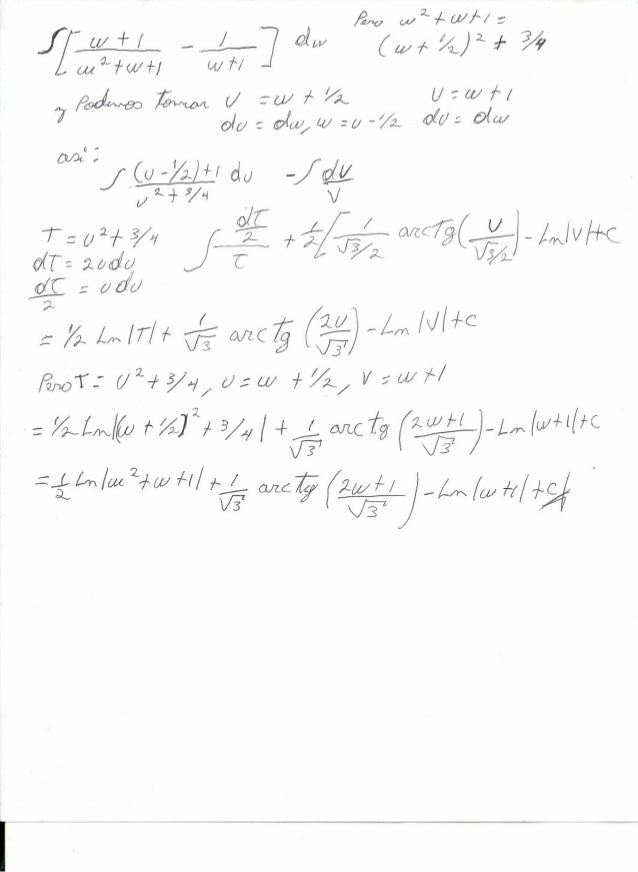 ∫[ (w+1)/(w²+w+1) - 1/(w+1) ] dw
Pero w²+w+1 =
(w+½)² + 3/4
y Podemos tomar U = w + ½
U = w + 1
du = dw, w = u - ½
dv = dw
asi:
∫ ((u-½)+1)/(u²+3/4) du - ∫ dv/V
T = u² + 3/4
dT = 2udu
dT/2 = udu
∫ (dT/2)/T + ½[ 1/(√3/2) arctg( U/(√3/2) ) - Ln|V|+C
= ½ Ln|T| + 1/√3 arctg (2U/√3) - Ln|V|+C
Pero T = U² + 3/4, U = w + ½, V = w+1
= ½ Ln|(w+½)² + 3/4| + 1/√3 arctg (2w+1/√3) - Ln|w+1|+C
= ½ Ln|w²+w+1| + 1/√3 arctg (2w+1/√3) - Ln|w+1|+C